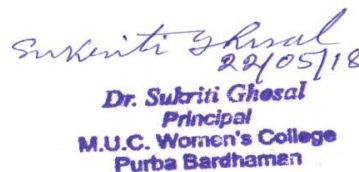 Sukriti Ghosal
22/05/18
Dr. Sukriti Ghosal
Principal
M.U.C. Women's College
Purba Bardhaman